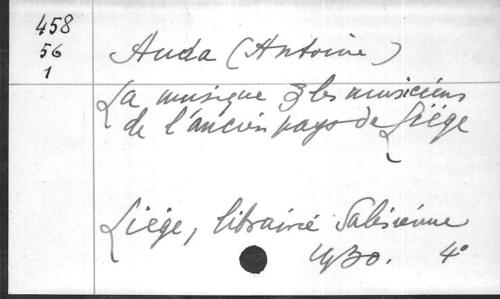 458
56
1
Auda (Antoine)
La musique & les musiciens
de l'ancien pays de Liége
Liége, librairie Salésienne
1930. 4°